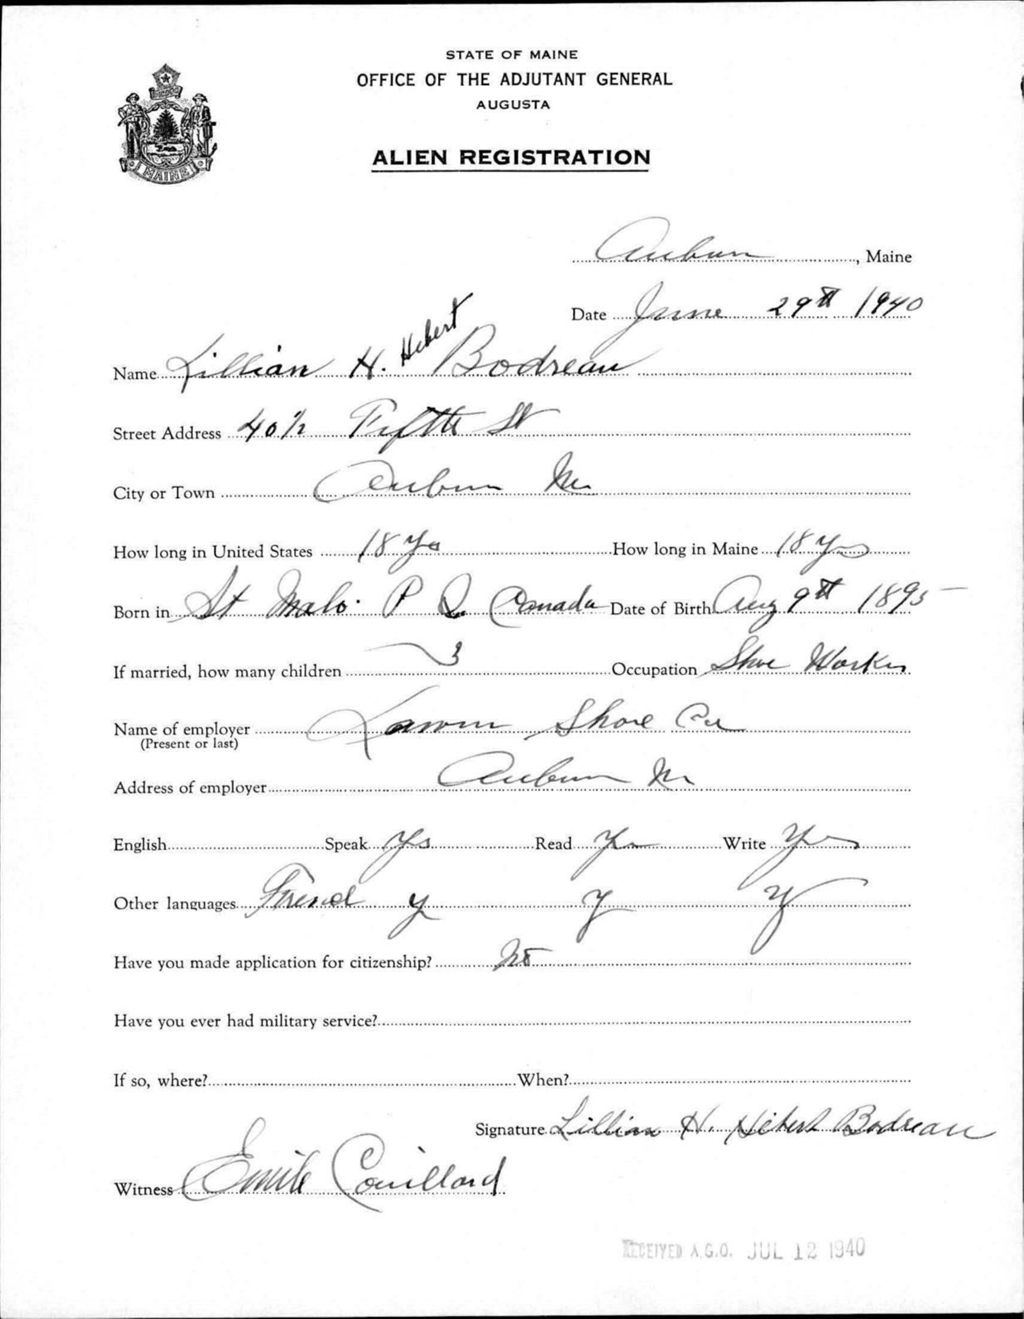 STATE OF MAINE
OFFICE OF THE ADJUTANT GENERAL
AUGUSTA
ALIEN REGISTRATION
MAINE
Auburn, Maine
Date June 29th 1940
Name Lillian H. Hebert Bodreau
Street Address 40½ Fifth St
City or Town Auburn Me
How long in United States 18 Yrs How long in Maine 18 Yrs
Born in St Malo. P Q Canada Date of Birth Aug 9th 1895
If married, how many children 3 Occupation Shoe Worker
Name of employer Shoe Co
(Present or last)
Address of employer Auburn Me
English Speak Yes Read Yes Write Yes
Other languages French y y y
Have you made application for citizenship? No
Have you ever had military service?
If so, where? When?
Signature Lillian H. Hebert Bodreau
Witness Emile Couillard
RECEIVED A.G.O. JUL 12 1940